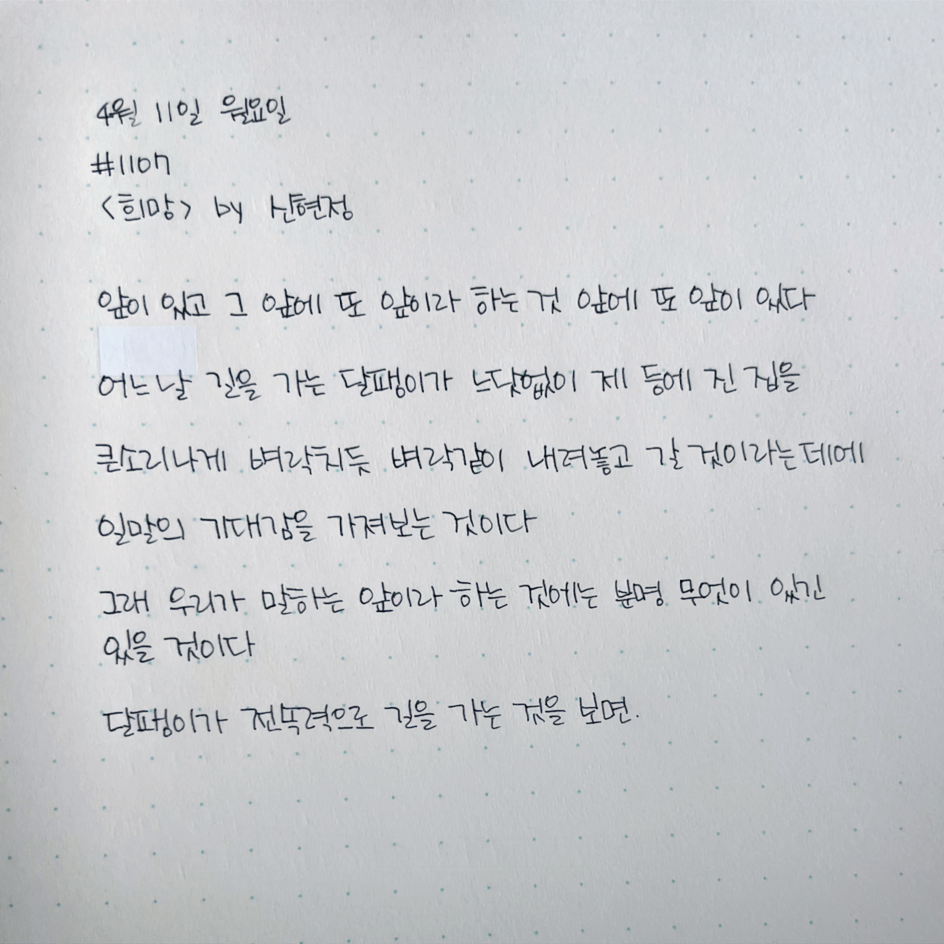 4월 11일 월요일
#1107
<희망> by 신현정
앞이 있고 그 앞에 또 앞이라 하는 것 앞에 또 앞이 있다
어느날 길을 가는 달팽이가 느닷없이 제 등에 진 집을
큰소리나게 벼락치듯 벼락같이 내려놓고 갈 것이라는데에
일말의 기대감을 가져보는 것이다
그래 우리가 말하는 앞이라 하는 것에는 분명 무엇이 있긴
있을 것이다
달팽이가 전속력으로 길을 가는 것을 보면.